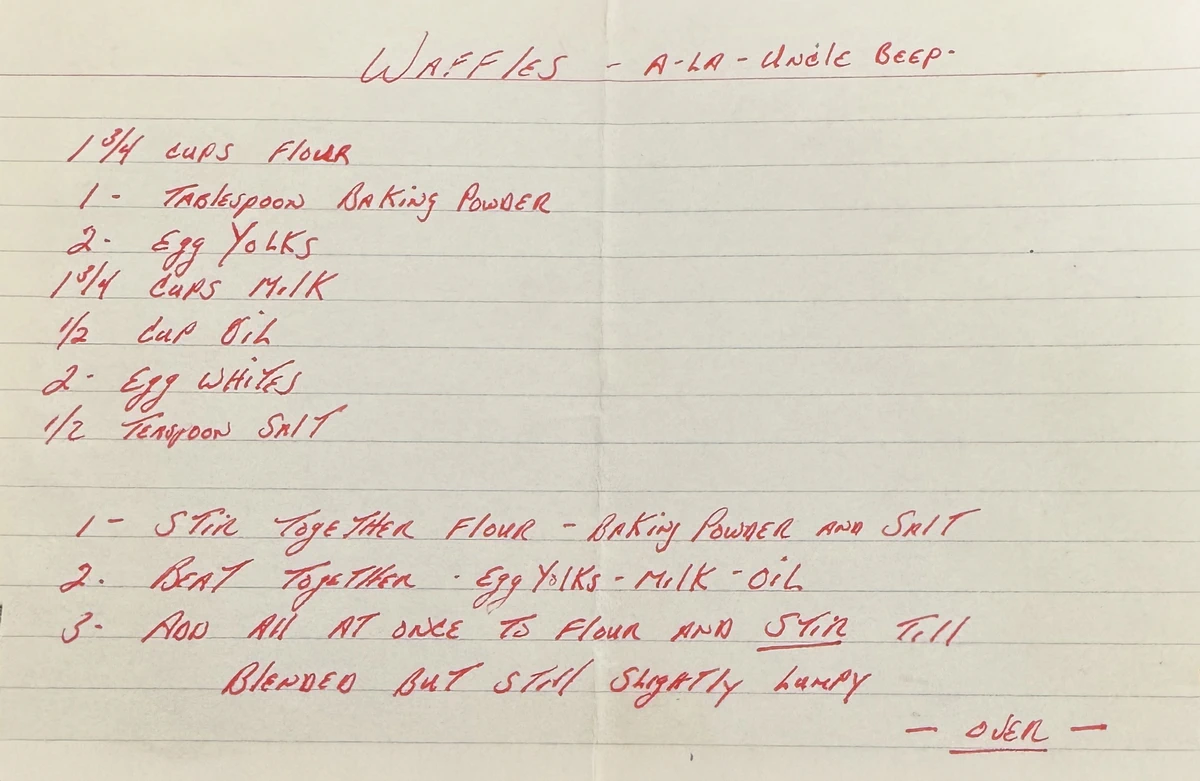 WAFFLES - A-LA - UNCLE BEEP-
1 3/4 CUPS FLOUR
1 - TABLESPOON BAKING POWDER
2. EGG YOLKS
1 3/4 CUPS MILK
1/2 CUP OIL
2 - EGG WHITES
1/2 TEASPOON SALT
1 - STIR TOGETHER FLOUR - BAKING POWDER AND SALT
2. BEAT TOGETHER - EGG YOLKS - MILK - OIL
3- ADD ALL AT ONCE TO FLOUR AND STIR TILL
BLENDED BUT STILL SLIGHTLY LUMPY
— OVER —